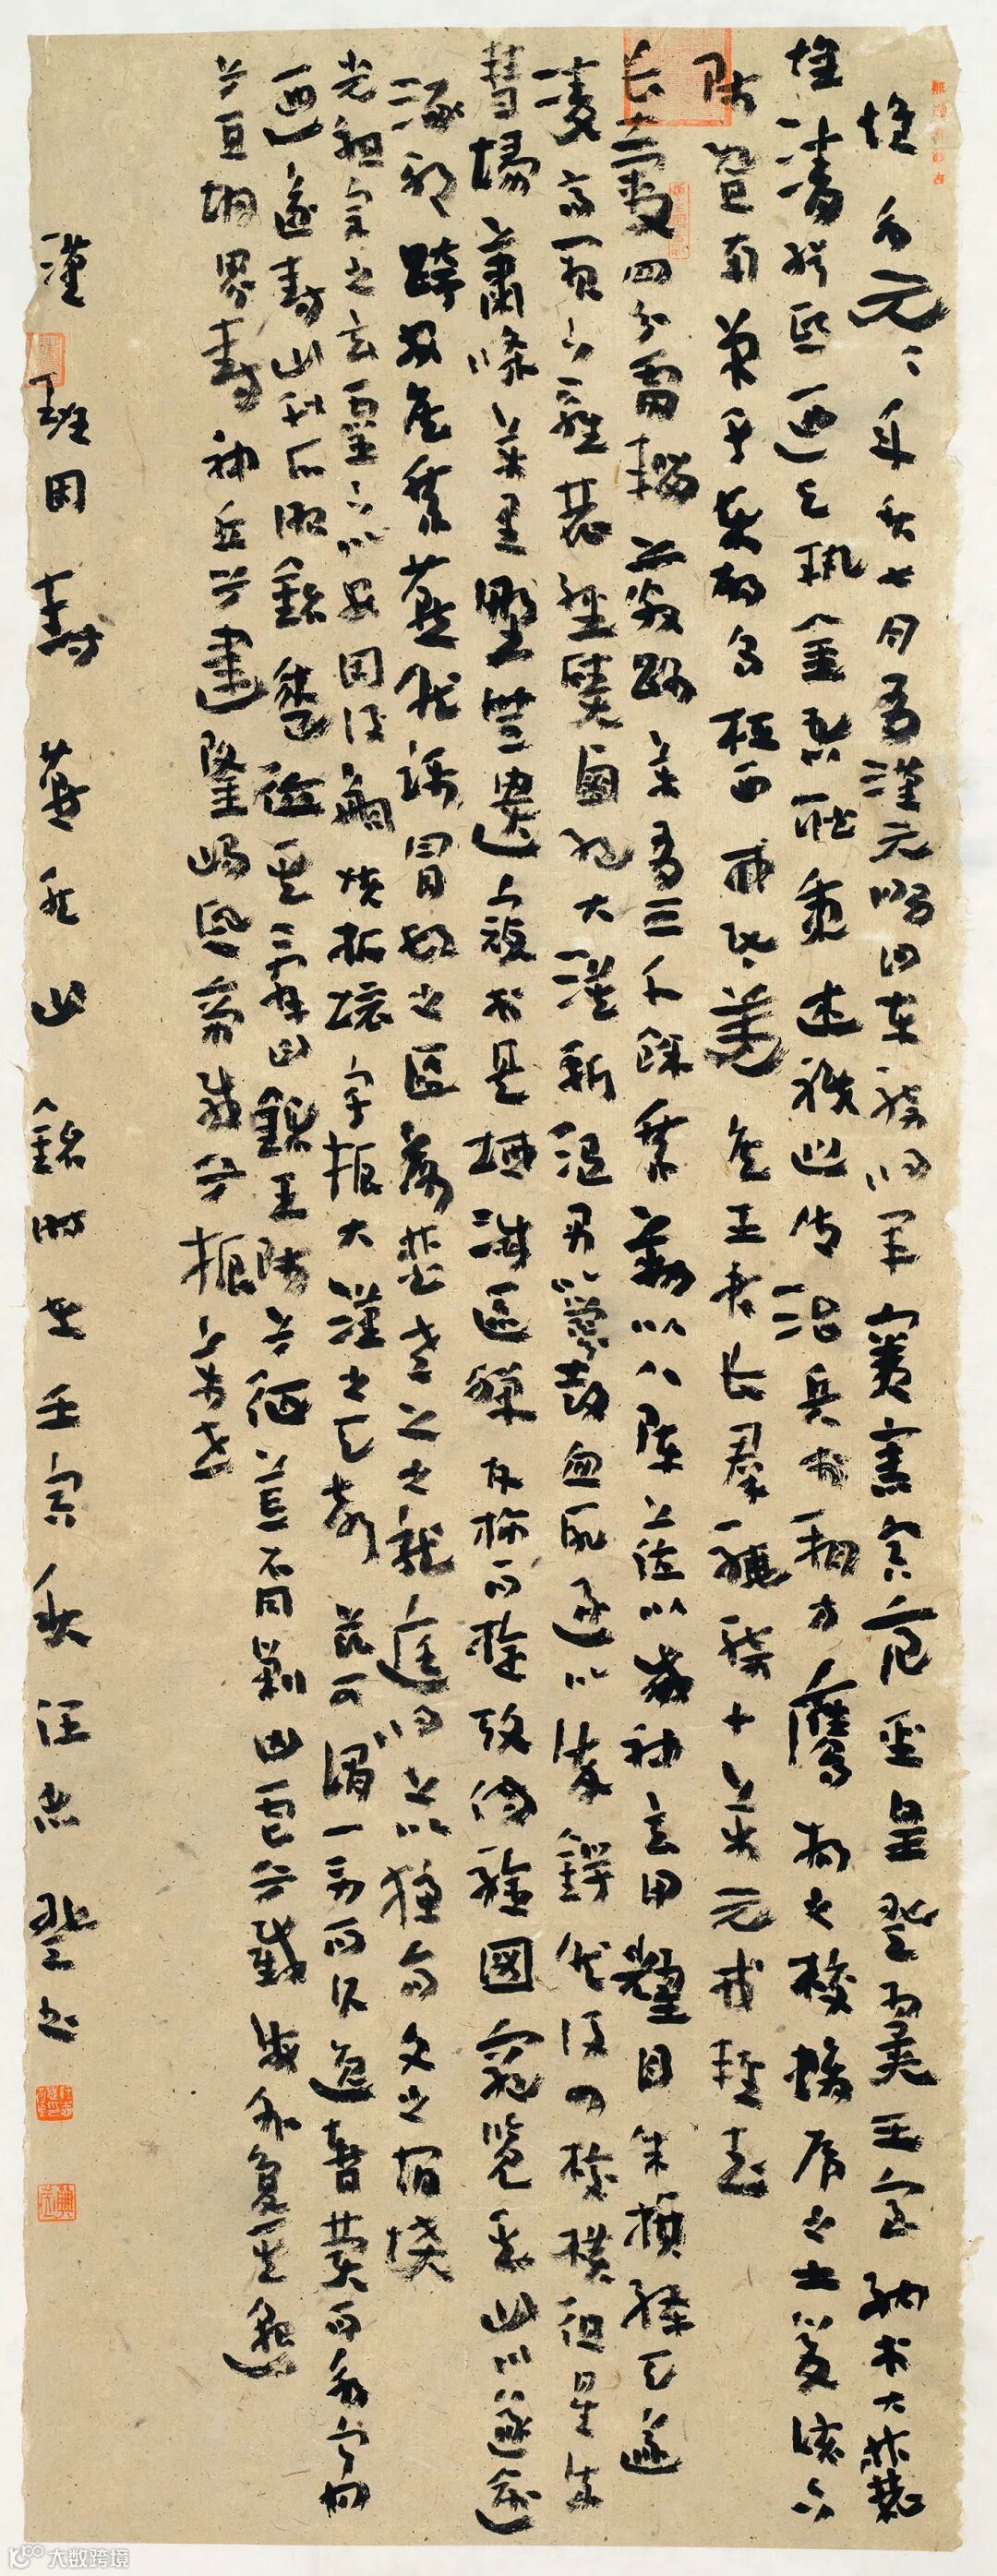 惟永元〻年秋七月有漢元舅曰車騎將軍竇憲寅亮聖皇登翼王室納于大麓
惟清緝熙迺與執金吾耿秉述職巡御治兵于朔方鷹揚之校螭虎之士爰該六
師暨南單于東胡烏桓西戎氐羌侯王君長群驍騎十萬元戎輕武
長轂四分雷輜蔽路萬有三千餘乘勒以八陣蒞以威神玄甲耀日朱旗絳天遂
凌高闕下雞鹿經磧鹵絕大漠斬溫禺以釁鼓血尸逐以染鍔然後四校橫徂星流
彗掃蕭條萬里野無遺寇於是域滅區殫反旆而旋考傳驗圖窮覽其山川遂踰
涿邪跨安侯乘燕然躡冒頓之區落焚老上之龍庭將上以攄高文之宿憤
光祖宗之玄靈下以安固後嗣恢拓境宇振大漢之天聲茲可謂一勞而久逸暫費而永寧也
迺遂封山刊石昭銘盛德其辭曰鑠王師兮征荒裔剿凶虐兮截海外夐其邈
兮亙地界封神丘兮建隆嵑熙帝載兮振萬世
漢班固封燕然山銘時在壬寅秋汪忠登書
大数跨境